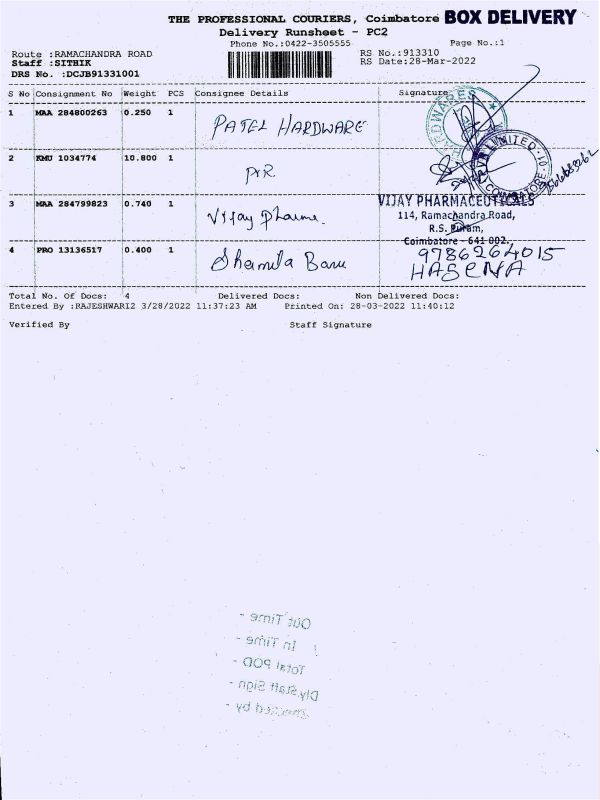 THE PROFESSIONAL COURIERS, Coimbatore BOX DELIVERY
Delivery Runsheet - PC2
Phone No.:0422-3505555 Page No.:1
Route :RAMACHANDRA ROAD RS No.:913310
Staff :SITHIK RS Date:28-Mar-2022
DRS No. :DCJB91331001
S No Consignment No Weight PCS Consignee Details Signature
1 MAA 284800263 0.250 1 PATEL HARDWARE
HARDWARES
2 KMU 1034774 10.800 1
LIMITED
COIMBATORE
3 MAA 284799823 0.740 1 Vijay Pharma.
VIJAY PHARMACEUTICALS
114, Ramachandra Road,
R.S. Puram,
Coimbatore - 641 002.
4 PRO 13136517 0.400 1 Sharmila Banu
9786264015
HASENA
Total No. Of Docs: 4 Delivered Docs: Non Delivered Docs:
Entered By :RAJESHWARI2 3/28/2022 11:37:23 AM Printed On: 28-03-2022 11:40:12
Verified By Staff Signature
Out Time -
In Time -
Total POD -
Dly.Staff Sign -
Checked by -